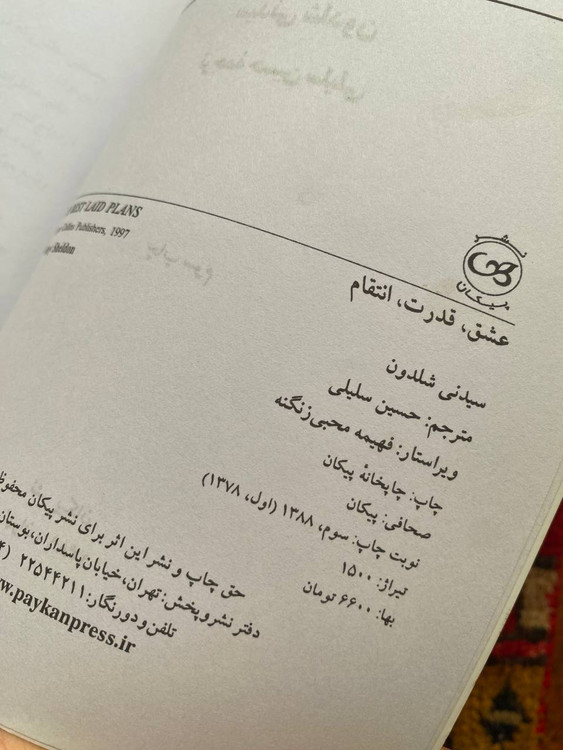 نشر
پیکان
BEST LAID PLANS
Publishers, 1997
Sheldon
عشق، قدرت، انتقام
سیدنی شلدون
مترجم: حسین سلیلی
ویراستار: فهیمه محبی‌زنگنه
چاپ: چاپخانهٔ پیکان
صحافی: پیکان
نوبت چاپ: سوم، ۱۳۸۸ (اول، ۱۳۷۸)
تیراژ: ۱۵۰۰
بها: ۶۶۰۰ تومان
حق چاپ و نشر این اثر برای نشر پیکان محفوظ
دفتر نشر و پخش: تهران، خیابان پاسداران، بوستان
تلفن و دورنگار: ۲۲۵۴۴۲۱۱
www.paykanpress.ir
سیدنی شلدون
ترجمهٔ حسین سلیلی
چاپ سوم